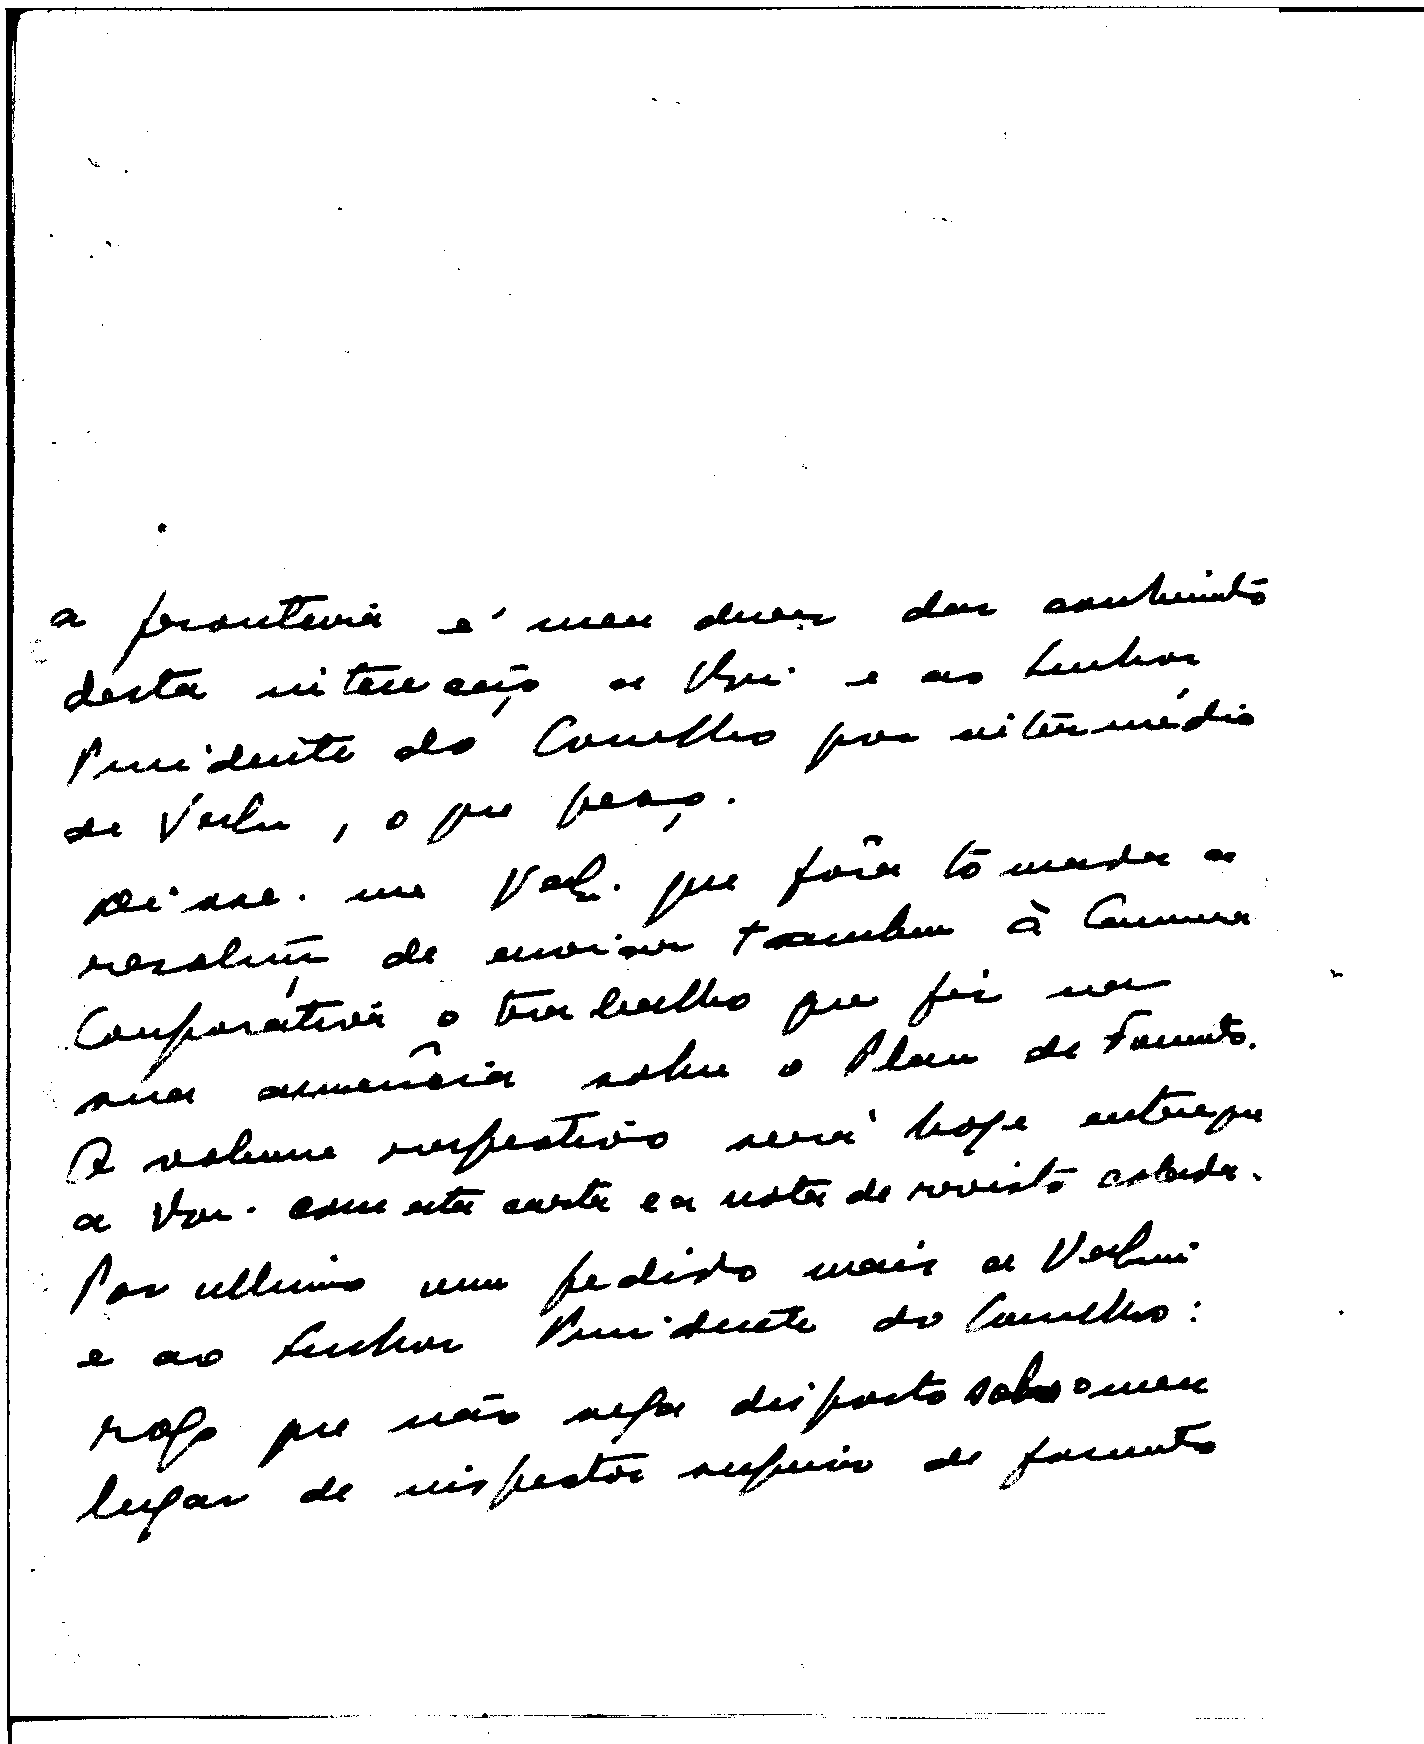 a fronteira é meu dever dar conhecimento
desta intenção a V. e ao Senhor
Presidente do Conselho por intermédio
de V , o que peço.
Disse-me V. que fôra tomada a
resolução de enviar tambem à Camara
Corporativa o trabalho que fiz na
sua ausência sobre o Plano de Fomento.
O volume respectivo será hoje entregue
a V. com esta carta e a nota de revisto colada.
Por ultimo um pedido mais a V
e ao Senhor Presidente do Conselho:
rogo que não seja disposto sobre o meu
lugar de inspector superior de fomento